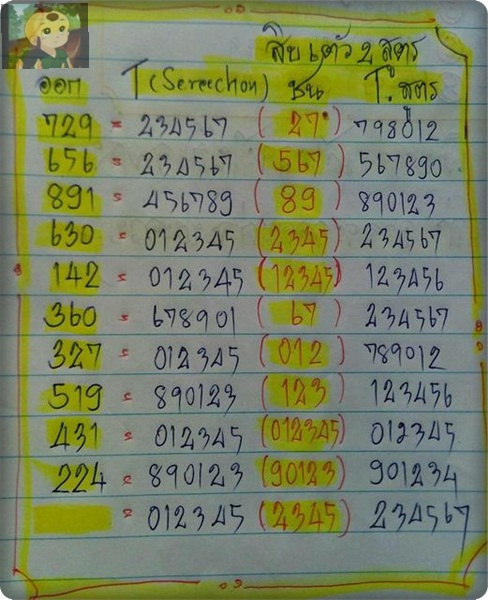 สิบเต๋า 2 สูตร
ออก T (Sereechon) ชน T. สูตร
729 = 234567 ( 27 ) 798012
656 = 234567 ( 567 ) 567890
891 = 456789 ( 89 ) 890123
630 = 012345 ( 2345 ) 234567
142 = 012345 ( 12345 ) 123456
360 = 678901 ( 67 ) 234567
327 = 012345 ( 012 ) 789012
519 = 890123 ( 123 ) 123456
431 = 012345 (012345) 012345
224 = 890123 (90123) 901234
= 012345 ( 2345 ) 234567